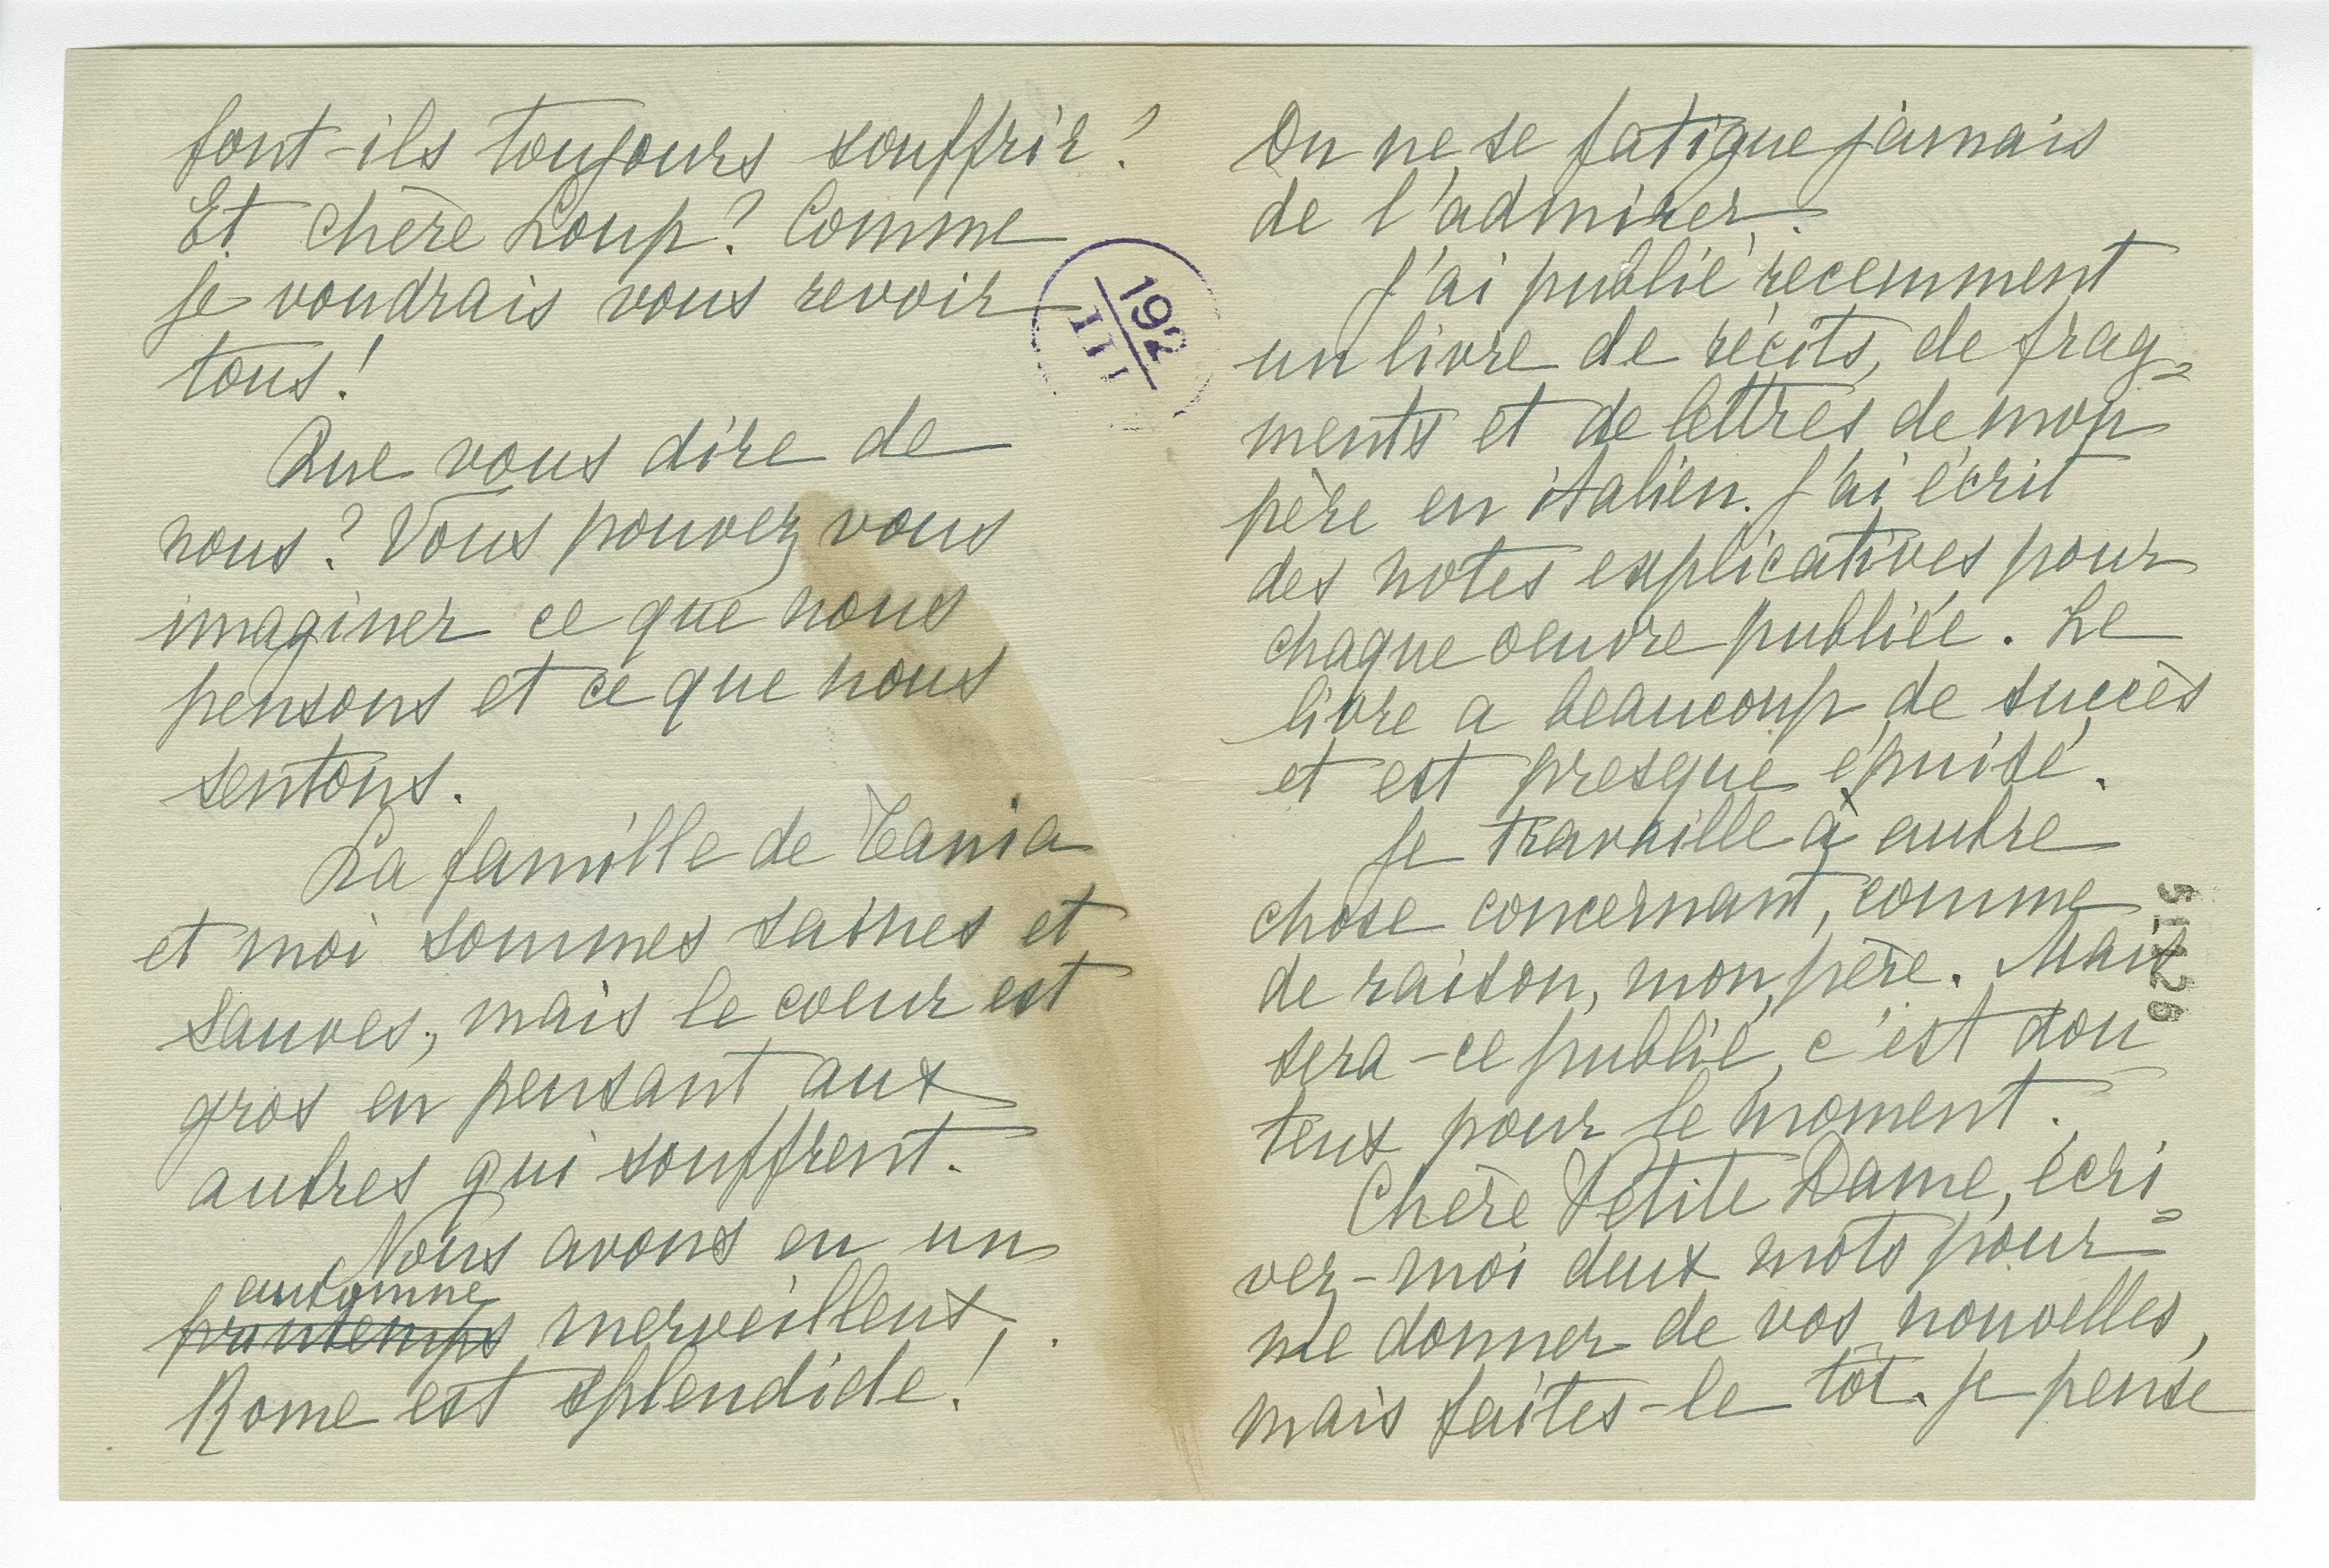 font-ils toujours souffrir?
Et chère Loup? Comme
je voudrais vous revoir
tous!
Que vous dire de
nous? Vous pouvez vous
imaginer ce que nous
pensons et ce que nous
sentons.
La famille de Tania
et moi sommes saines et
sauves, mais le coeur est
gros en pensant aux
autres qui souffrent.
Nous avons eu un
automne
printemps merveilleux,
Rome est splendide!
192
III
On ne se fatigue jamais
de l'admirer.
J'ai publié recemment
un livre de récits, de frag-
ments et de lettres de mon
père en italien. J'ai écrit
des notes explicatives pour
chaque oeuvre publiée. Le
livre a beaucoup de succès
et est presque épuisé.
Je travaille à autre
chose concernant, comme
de raison, mon père. Mais
sera-ce publié, c'est dou-
teux pour le moment.
Chère Petite Dame, écri-
vez-moi deux mots pour
me donner de vos nouvelles,
mais faites-le tôt. Je pense